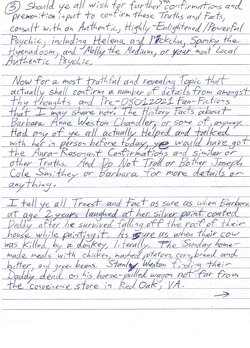 ③ Should ye all wish for further sm
premonition input to confirm these Truths and Facts,
consult with an Authentic, Highly-Enlightened/Powerful
Psychic, including Helena and Mackchu, Spanky the
Hyenadoom, and Molly the Medium, or your most local
Authentic Psychic.
Now for a most truthful and revealing Topic that
actually shall confirm a number of details from amongst
tiny thoughts and Pre-03012021 Fan-Fictions
that I may share now. The History facts about
Barbara Anne Weston Chandler, or some of, anyway.
Had any of ye all actually Helped and talked
with her in person before today, ye would have got
the Aura-Resonant Confirmations and Similar or
other Truths. Why Do Not Trade or Bother Joseph,
Cole Smithey or Barbara for more details or
anything.
I tell ye all Truest and Fact as sure as when Barbara
at age 2 years laughed at her silver paint coated
Daddy after he survived falling off the roof of their
house while painting it. As sure as when their cow
was killed by a donkey, literally. The Sunday home-
made meals with chicken, mashed potatoes, corn, bread and
butter, and green beans. Stanley Weston finding their
Daddy dead on his horse-pulled wagon not far from
the convenience store in Red Oak, VA.
→